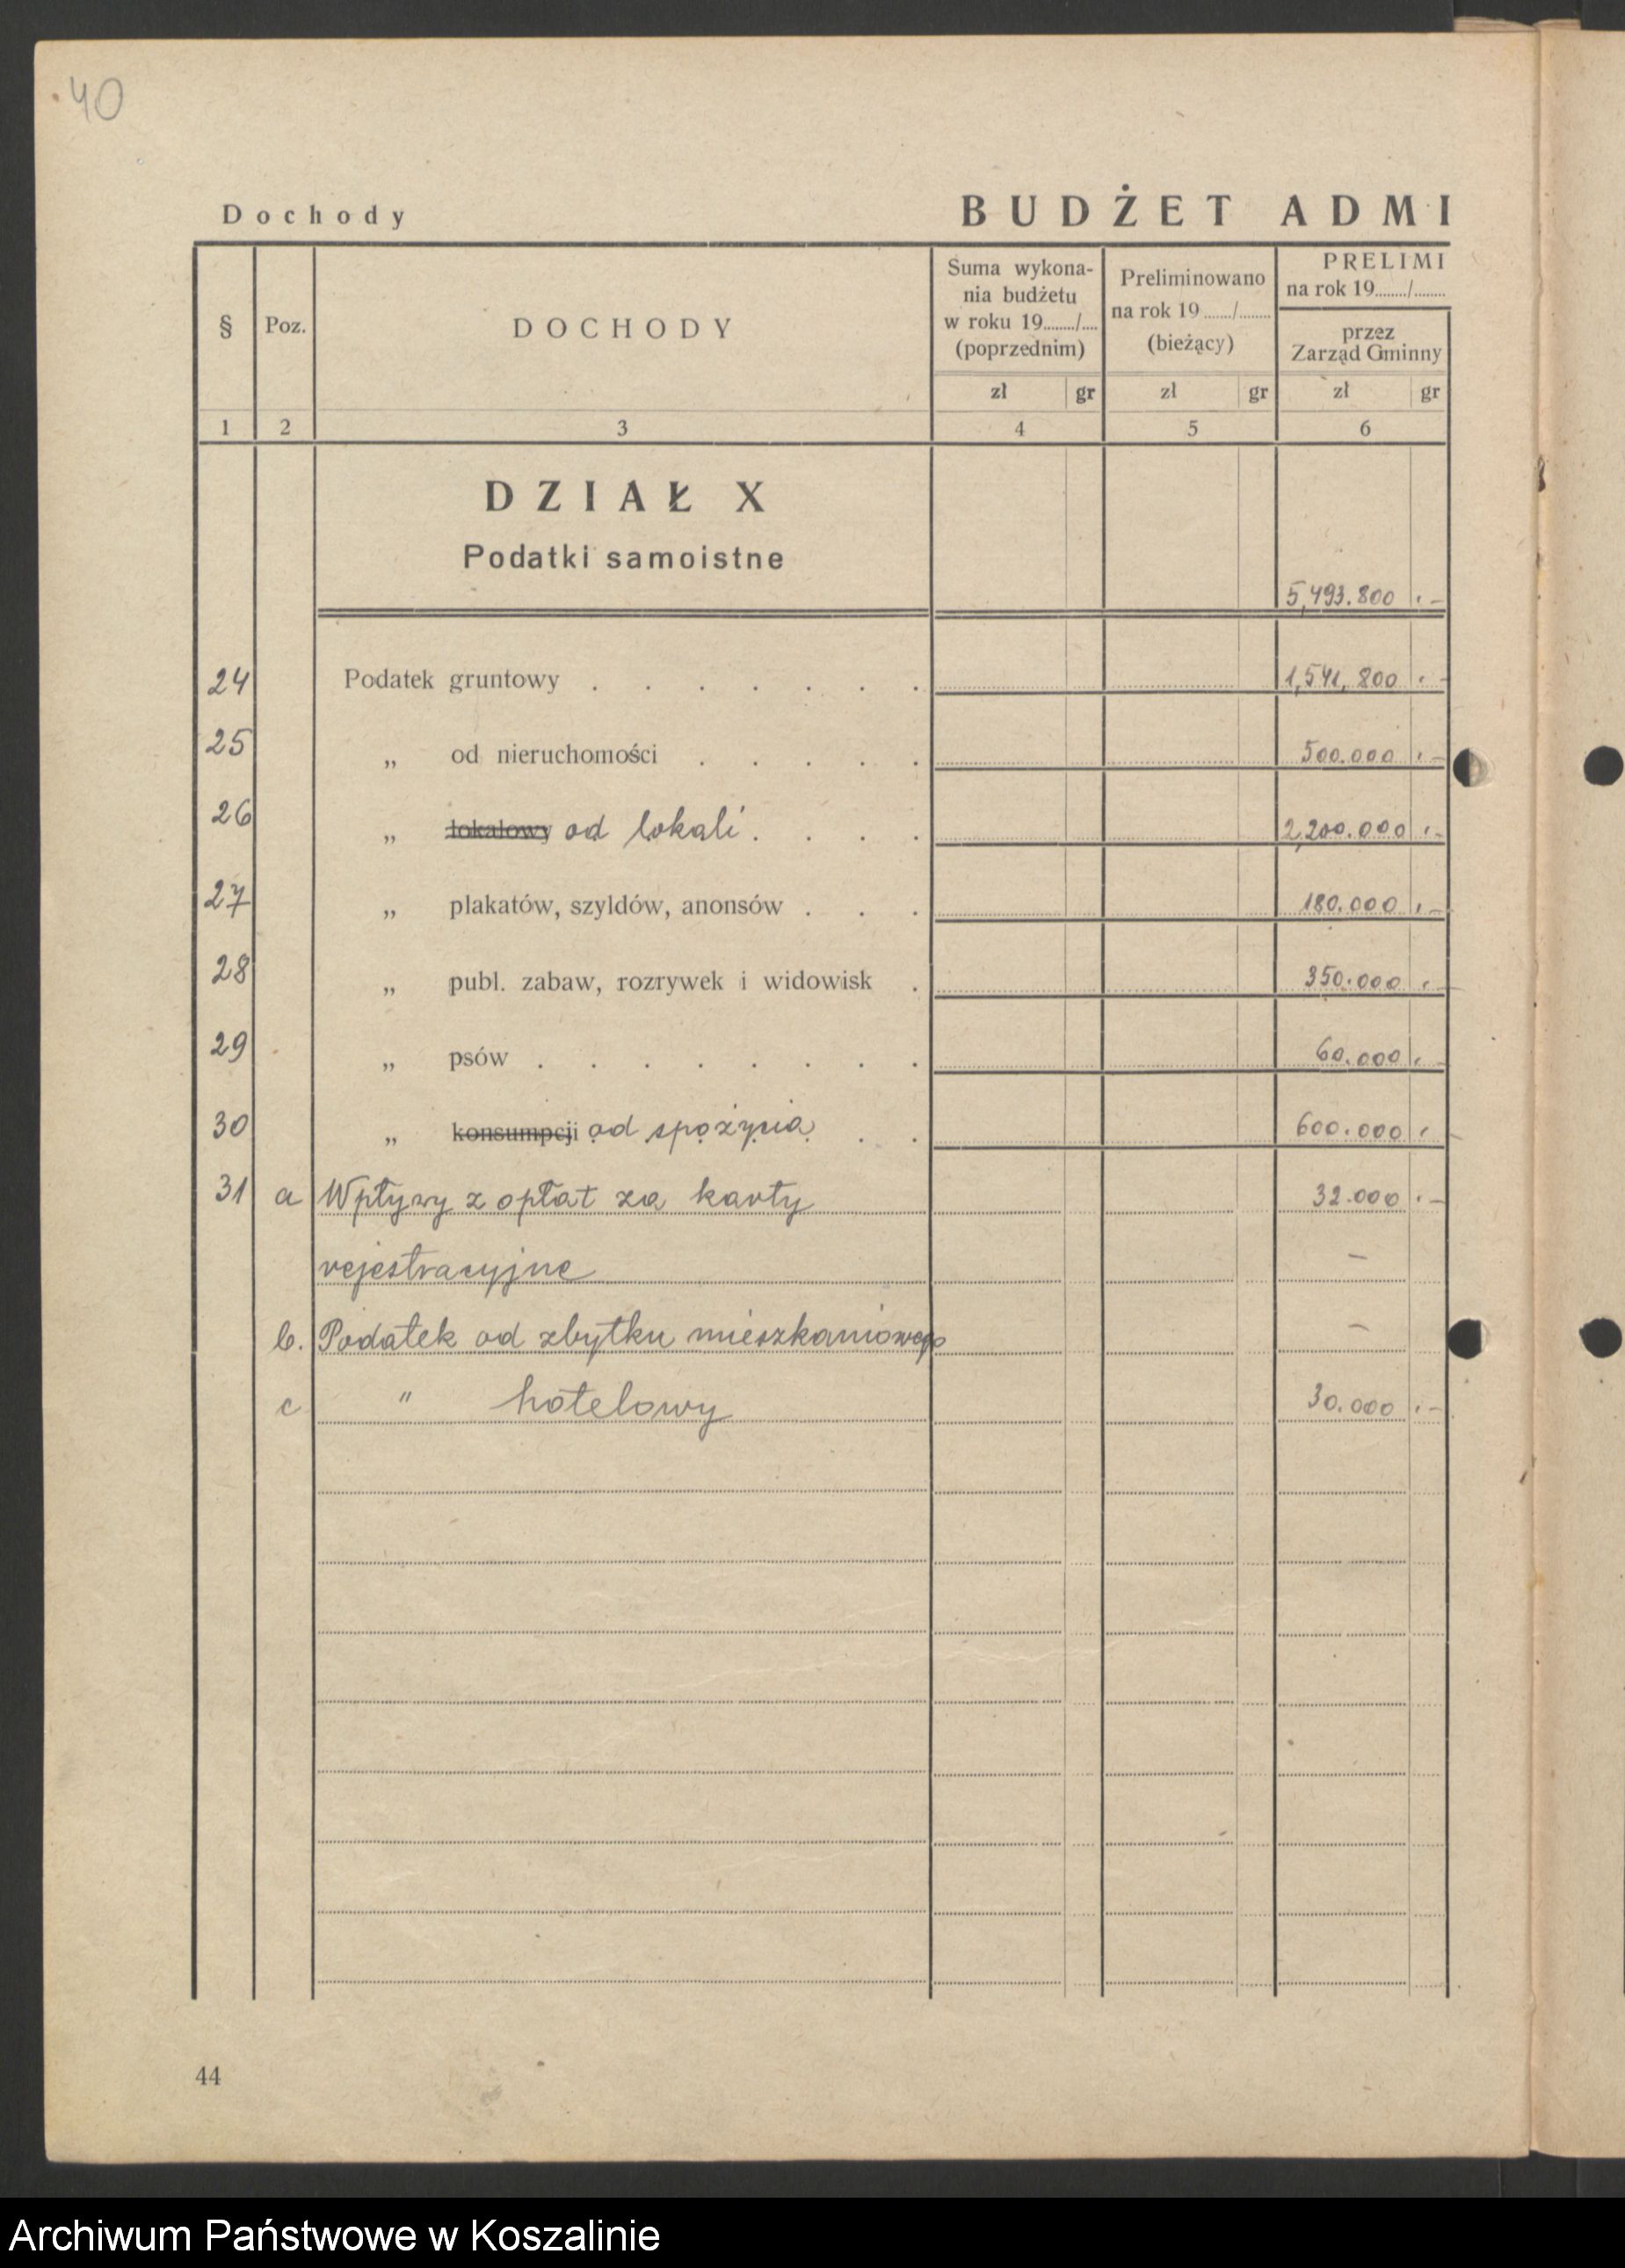 40
Dochody BUDŻET ADMI
§ Poz. DOCHODY
Suma wykona-
nia budżetu
w roku 19......../....
(poprzednim)
Preliminowano
na rok 19....../........
(bieżący)
PRELIMI
na rok 19......../........
przez
Zarząd Gminny
zł gr zł gr zł gr
1 2 3 4 5 6
DZIAŁ X
Podatki samoistne
5,493.800 . -
24 Podatek gruntowy . . . . . . . 1,541,800 . -
25 „ od nieruchomości . . . . . 500.000 . -
26 „ lokalowy od lokali . . . . 2,200.000 . -
27 „ plakatów, szyldów, anonsów . . . 180.000 . -
28 „ publ. zabaw, rozrywek i widowisk . 350.000 . -
29 „ psów . . . . . . . . 60.000 . -
30 „ konsumpcji od spożycia . . 600.000 . -
31 a Wpływy z opłat za karty 32.000 . -
rejestracyjne -
b. Podatek od zbytku mieszkaniowego -
c " hotelowy 30.000 . -
44
Archiwum Państwowe w Koszalinie